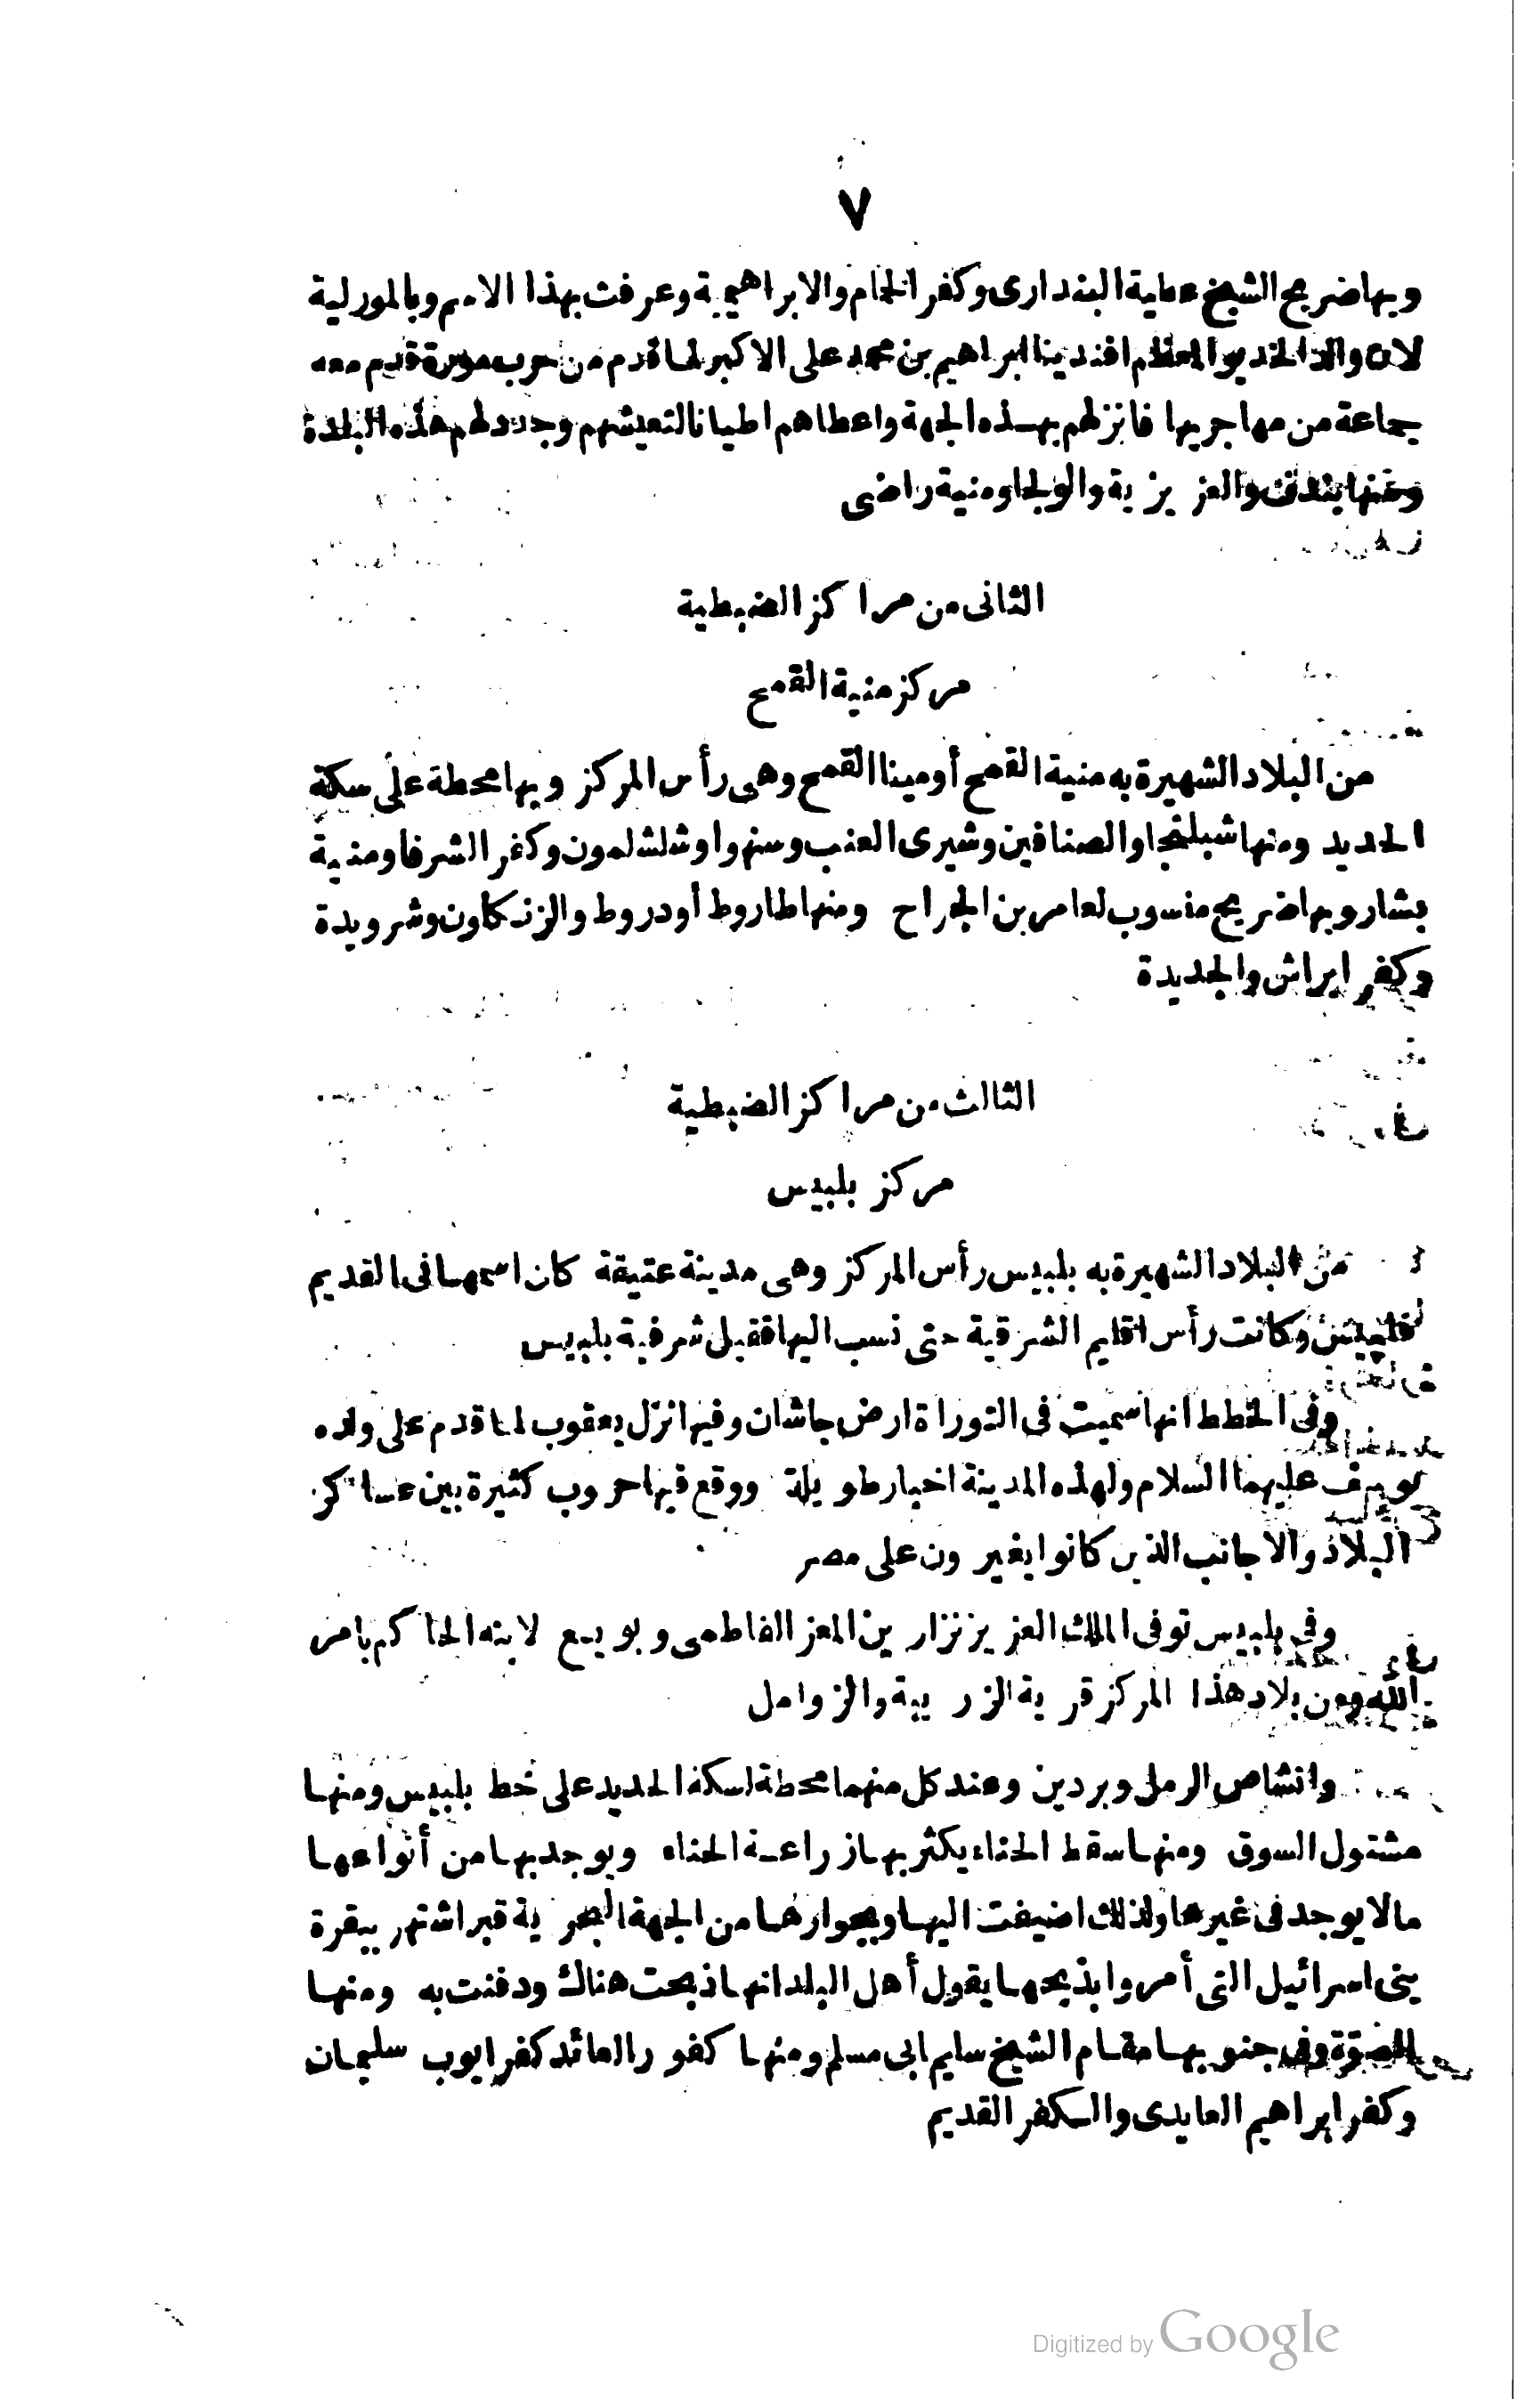 ٧
وبها ضريح الشيخ عطية البندارى وكفر الحمام والابراهيمية وعرفت بهذا الاسم وبالمورلية
لان والد الخديو المعظم افندينا ابراهيم بن محمد على الاكبر لما قدم من حرب مورة قدم معه
جماعة من مهاجريها فانزلهم بهذه الجهة واعطاهم اطيانا لتعيشهم وجدد لهم هذه البلدة
ومنها بندف والعزيزية والولجا ومنية راضى
الثانى من مراكز الضبطية
مركز منية القمح
من البلاد الشهيرة به منية القمح أو مينا القمح وهى رأس المركز وبها محطة على سكة
الحديد ومنها شبلنجا والصنافين وشبرى العنب وسنهوا وشلشلمون وكفر الشرفا ومنية
بشار وبها ضريح منسوب لعامر بن الجراح ومنها طاروط أو دروط والزنكاون وشرويدة
وكفر ابراش والجديدة
الثالث من مراكز الضبطية
مركز بلبيس
من البلاد الشهيرة به بلبيس رأس المركز وهى مدينة عتيقة كان اسمها فى القديم
وكانت رأس اقليم الشرقية حتى نسب اليها فقيل شرقية بلبيس
وفى الخطط انها سميت فى التوراة ارض جاشان وفيها نزل يعقوب لما قدم على ولده
يوسف عليهما السلام ولهذه المدينة اخبار طويلة ووقع فيها حروب كثيرة بين عساكر
البلاد والاجانب الذين كانوا يغيرون على مصر
وفى بلبيس توفى الملك العزيز نزار بن المعز الفاطمى وبويع لابنه الحاكم بامر
الله ومن بلاد هذا المركز قرية الزريبة والزوامل
وانشاص الرمل وبردين وعند كل منهما محطة لسكة الحديد على خط بلبيس ومنها
مشتول السوق ومنها سقط الحناء يكثر بها زراعة الحناء ويوجد بها من أنواعها
مالا يوجد فى غيرها ولذلك اضيفت اليها وبجوارها من الجهة البحرية قبر اشتهر ببقرة
بنى اسرائيل التى أمروا بذبحها يقول أهل البلد انها ذبحت هناك ودفنت به ومنها
الصوّة وفى جنوبها مقام الشيخ سليم ابى مسلم ومنها كفور العائد كفر ايوب سليمان
وكفر ابراهيم العايدى والكفر القديم
Digitized by Google